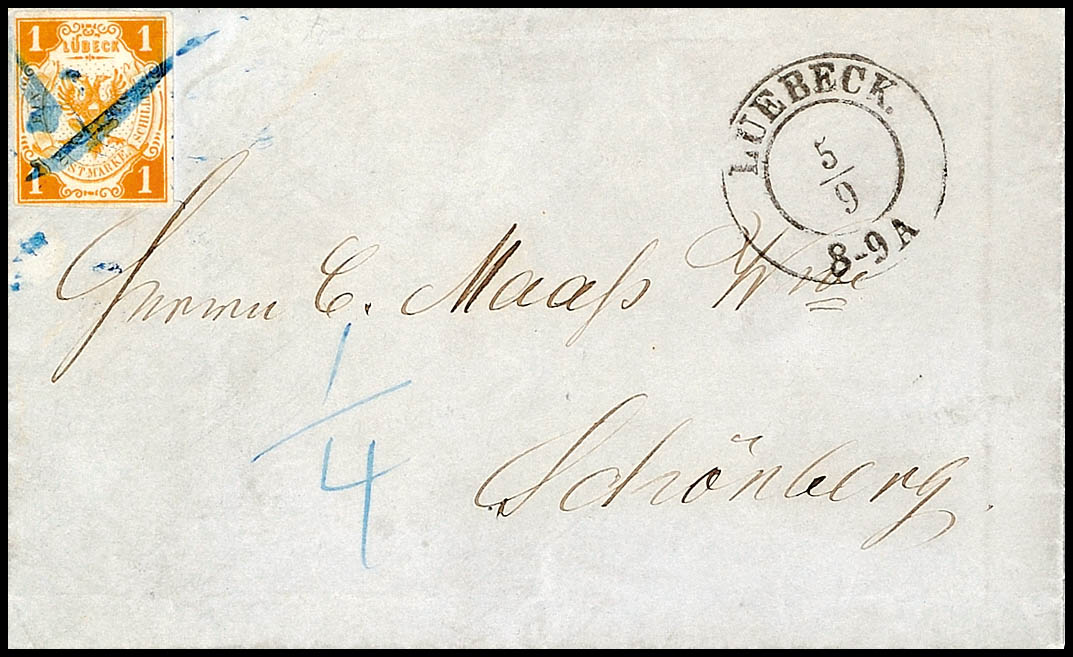 1 1
LÜBECK
EIN POSTMARKE SCHILLING
1 1
LUEBECK.
5/9
8-9A
Herrn C. Maaß Wwe
1/4
Schönberg.